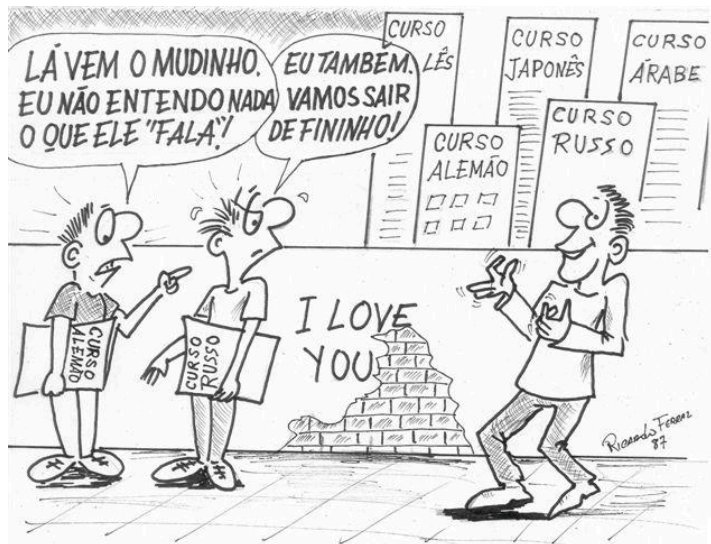 LÁ VEM O MUDINHO.
EU NÃO ENTENDO NADA
O QUE ELE "FALA"!
EU TAMBÉM.
VAMOS SAIR
DE FININHO!
CURSO
LÊS
CURSO
JAPONÊS
CURSO
ÁRABE
CURSO
ALEMÃO
CURSO
RUSSO
CURSO
ALEMÃO
CURSO
RUSSO
I LOVE
YOU
RICARDO FERRAZ
87